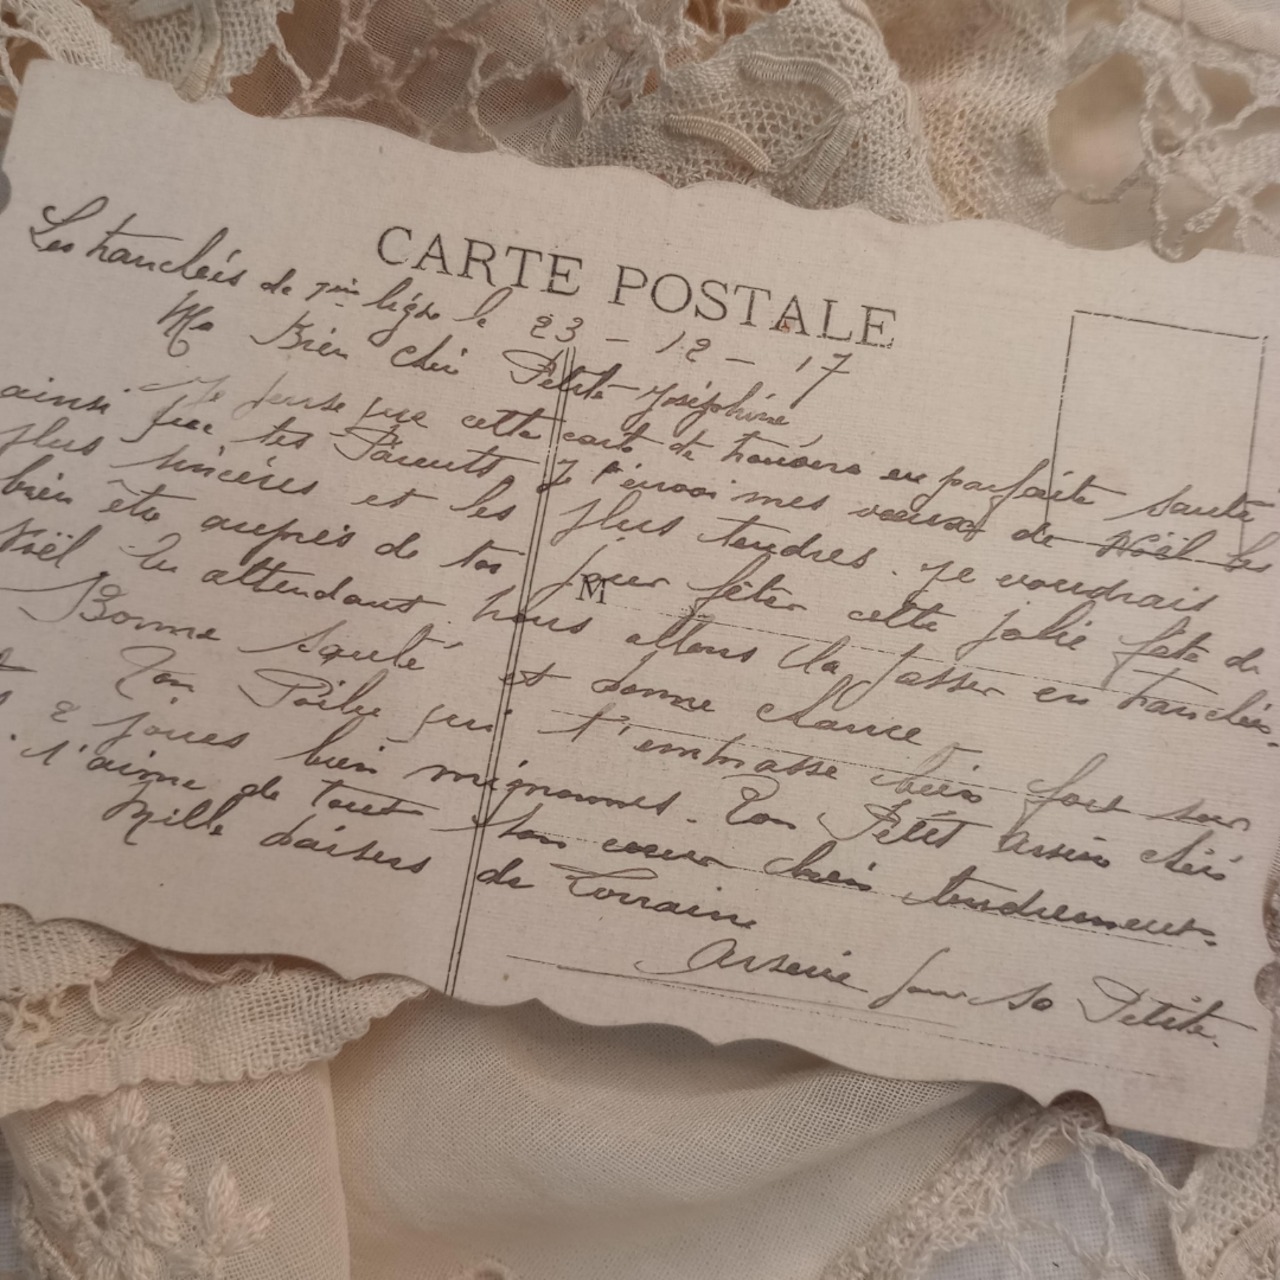 CARTE POSTALE
Les tranchéés de 1ere ligne le 23 - 12 - 17
Ma Bien cheri Petite Joséphine
Je pense que cette carte te trouvera en parfaite santé
ainsi que tes Parents, Je t'envoi mes voeux de Noël les
plus sincéres et les plus tendres. je voudrais
bien être auprés de toi pour fêter cette jolie fête de
Noël. En attendant nous allons la passer en tranchées.
Bonne Santé et bonne chance
Ton Poilu qui t'embrasse bien fort sur
2 joues bien mignonnes. Ton Petit Arsene chéri
t'aime de tout son coeur bien tendrement.
Mille baisers de Lorraine
Arsene pour sa Petite.
M